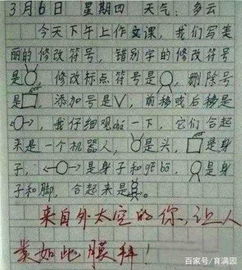 3月6日 星期四 天气：多云
今天下午上作文课，我们写美
丽的修改符号，错别字的修改符号
是，修改标点符号是，删除号
是，添加号是√，前移或后移是
，我仔细观 一下，它们合起
来是一个机器人，是头，是身
子，是身子和 ，是身
子和脚，合起来是
来自外太空的你，让人
类如此膜拜！
百家号/育满园